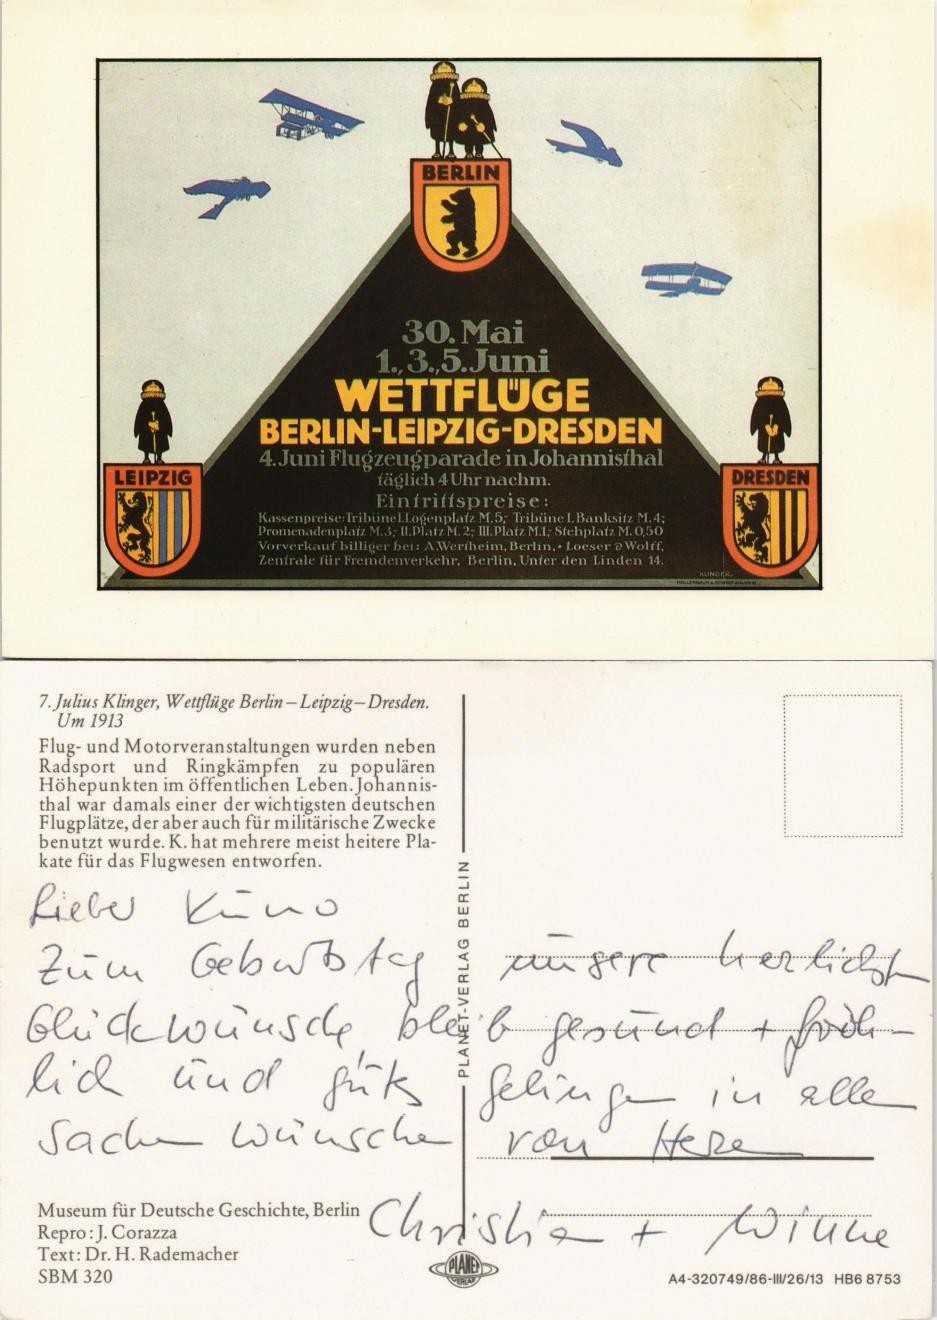 BERLIN
30. Mai
1., 3., 5. Juni
WETTFLÜGE
BERLIN-LEIPZIG-DRESDEN
4. Juni Flugzeugparade in Johannisthal
täglich 4 Uhr nachm.
Eintrittspreise:
Kassenpreise: Tribüne I. Logenplatz M. 5,- Tribüne I. Banksitz M. 4;
Promenadenplatz M. 3; II. Platz M. 2; III. Platz M. 1; Stehplatz M. 0,50
Vorverkauf billiger bei: A. Wertheim, Berlin, • Loeser & Wolff,
Zentrale für Fremdenverkehr, Berlin, Unter den Linden 14.
LEIPZIG
DRESDEN
KLINGER
7. Julius Klinger, Wettflüge Berlin – Leipzig – Dresden.
Um 1913
Flug- und Motorveranstaltungen wurden neben
Radsport und Ringkämpfen zu populären
Höhepunkten im öffentlichen Leben. Johannis-
thal war damals einer der wichtigsten deutschen
Flugplätze, der aber auch für militärische Zwecke
benutzt wurde. K. hat mehrere meist heitere Pla-
kate für das Flugwesen entworfen.
Lieber Kuno
Zum Geburtstag unsere herzlichsten
Glückwünsche, bleib gesund + fröh-
lich und gutes Gelingen in allen
Sachen wünschen von Herzen
Christian + Winne
PLANET-VERLAG BERLIN
Museum für Deutsche Geschichte, Berlin
Repro: J. Corazza
Text: Dr. H. Rademacher
SBM 320
PLANET
VERLAG
A4-320749/86-III/26/13 HB6 8753